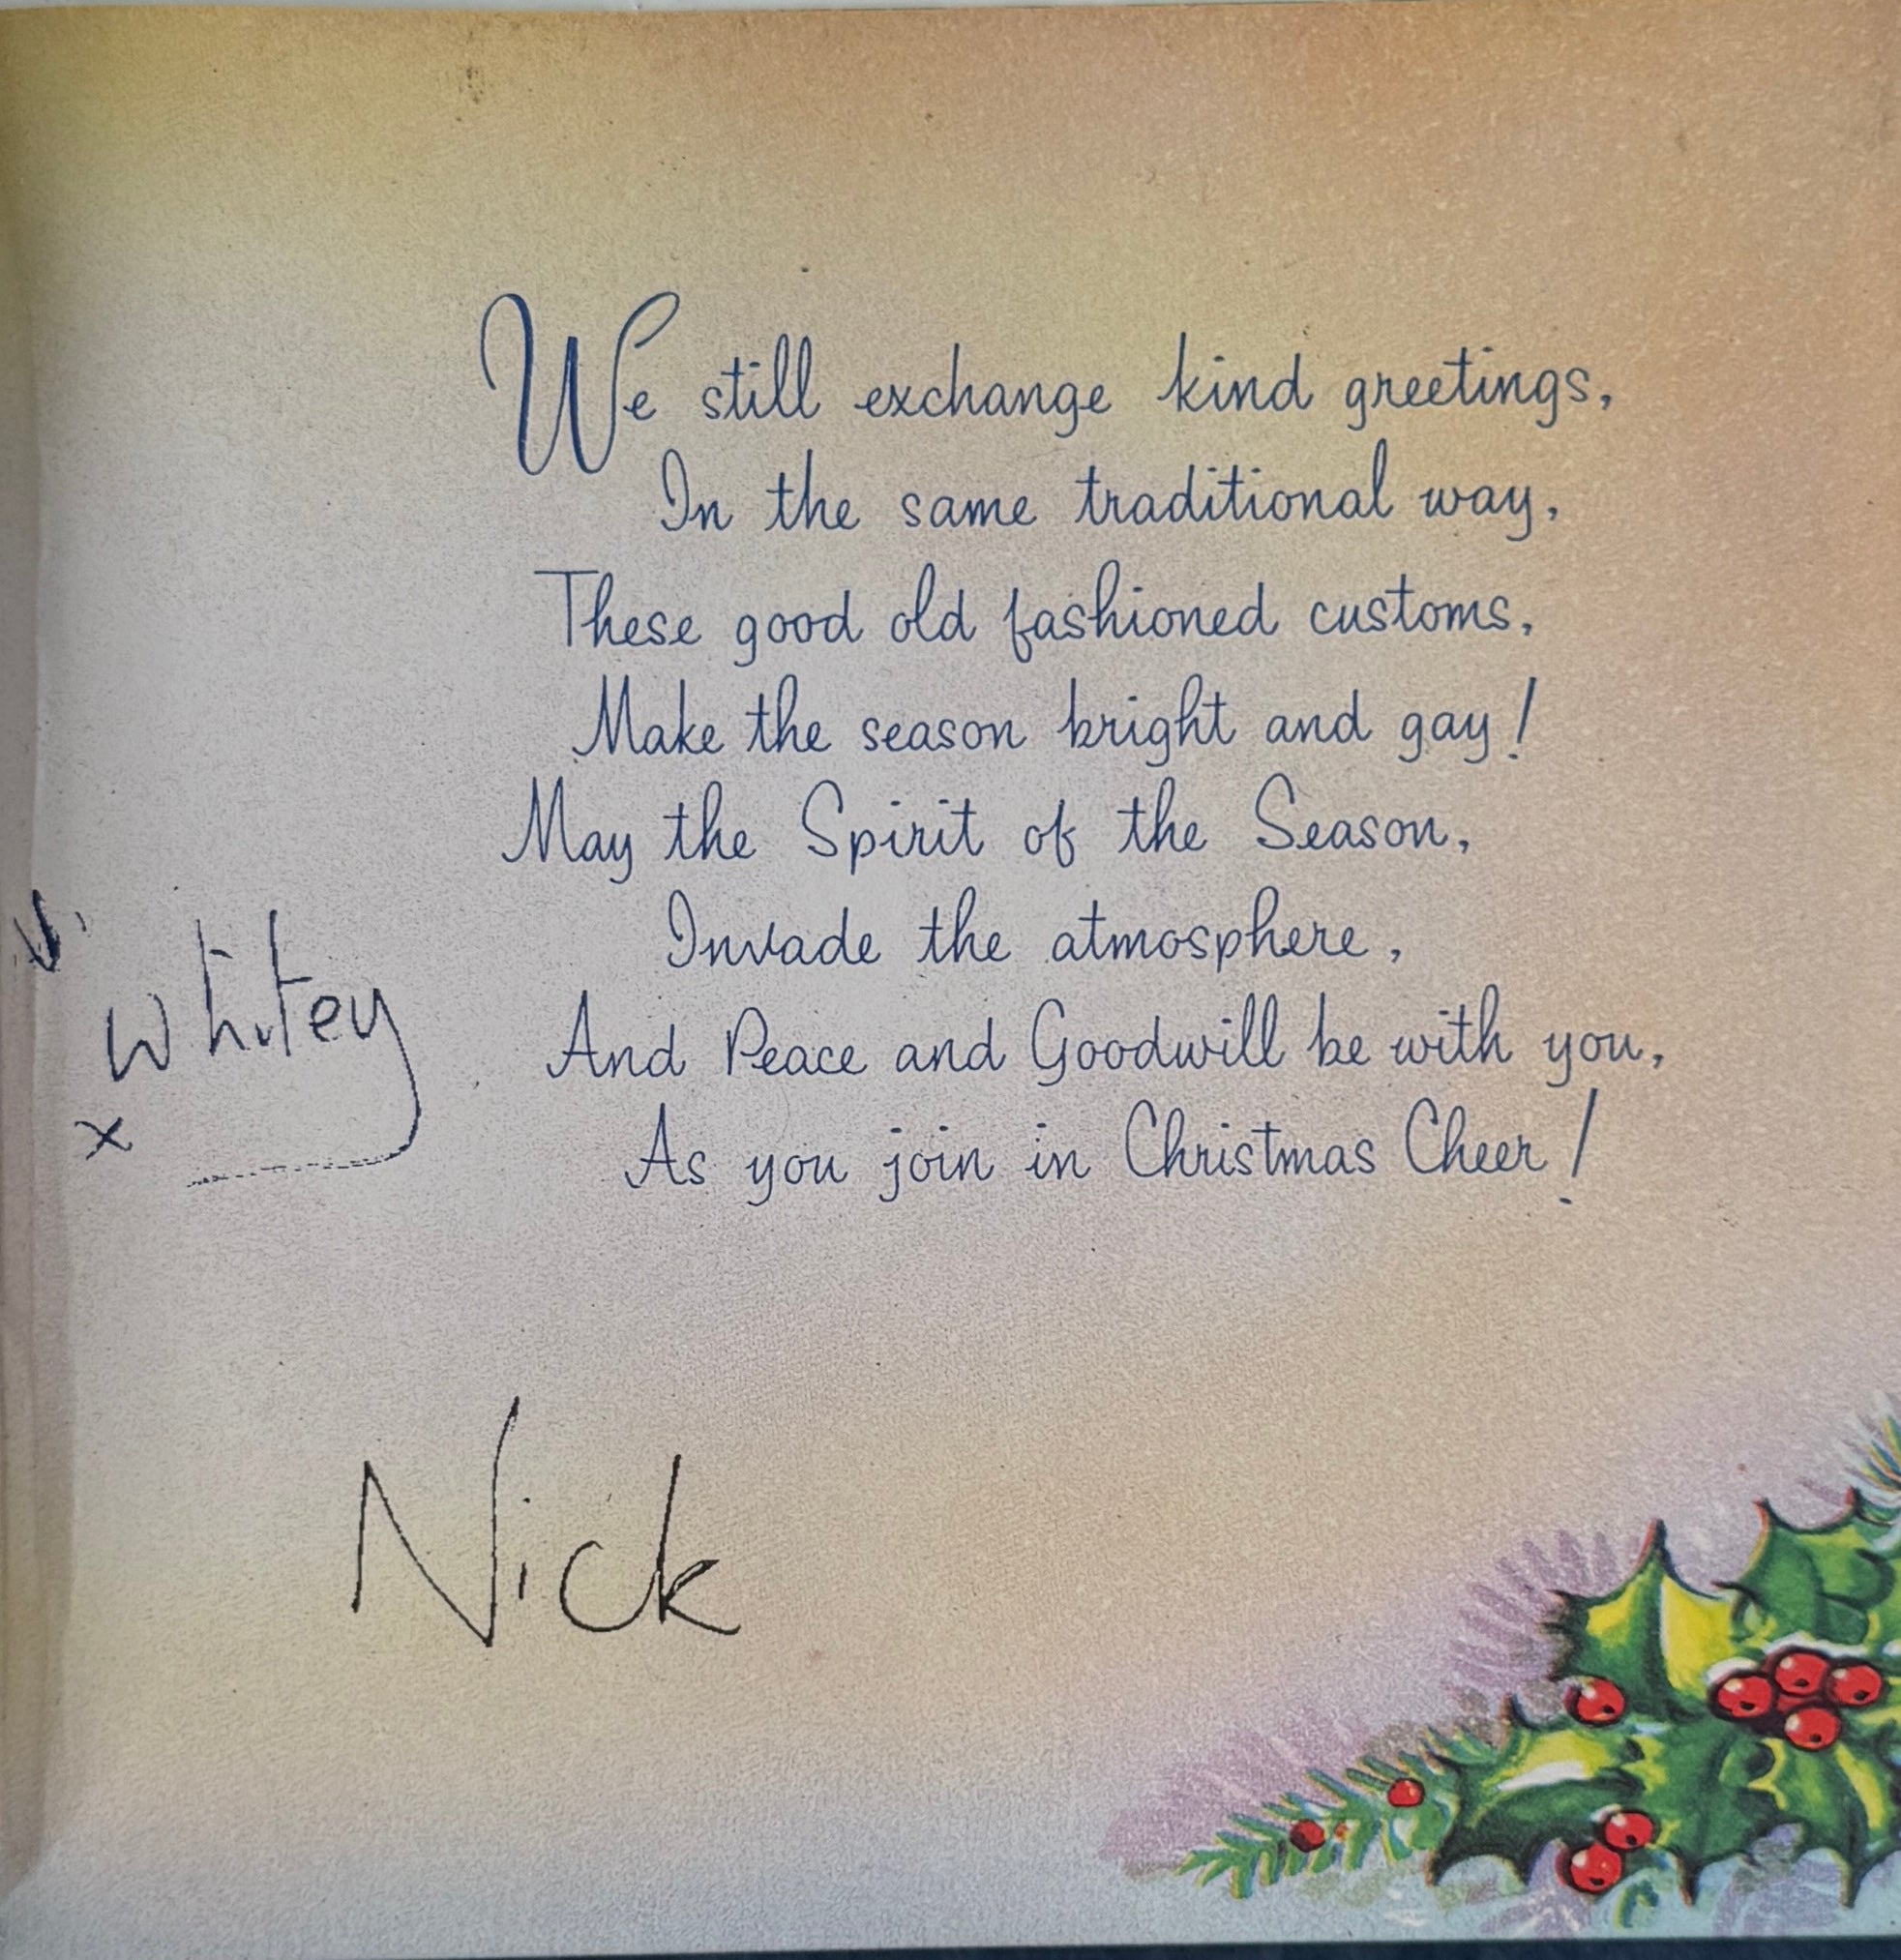 We still exchange kind greetings,
In the same traditional way,
These good old fashioned customs,
Make the season bright and gay!
May the Spirit of the Season,
Invade the atmosphere,
And Peace and Goodwill be with you,
As you join in Christmas Cheer!
Whitey
x
Nick